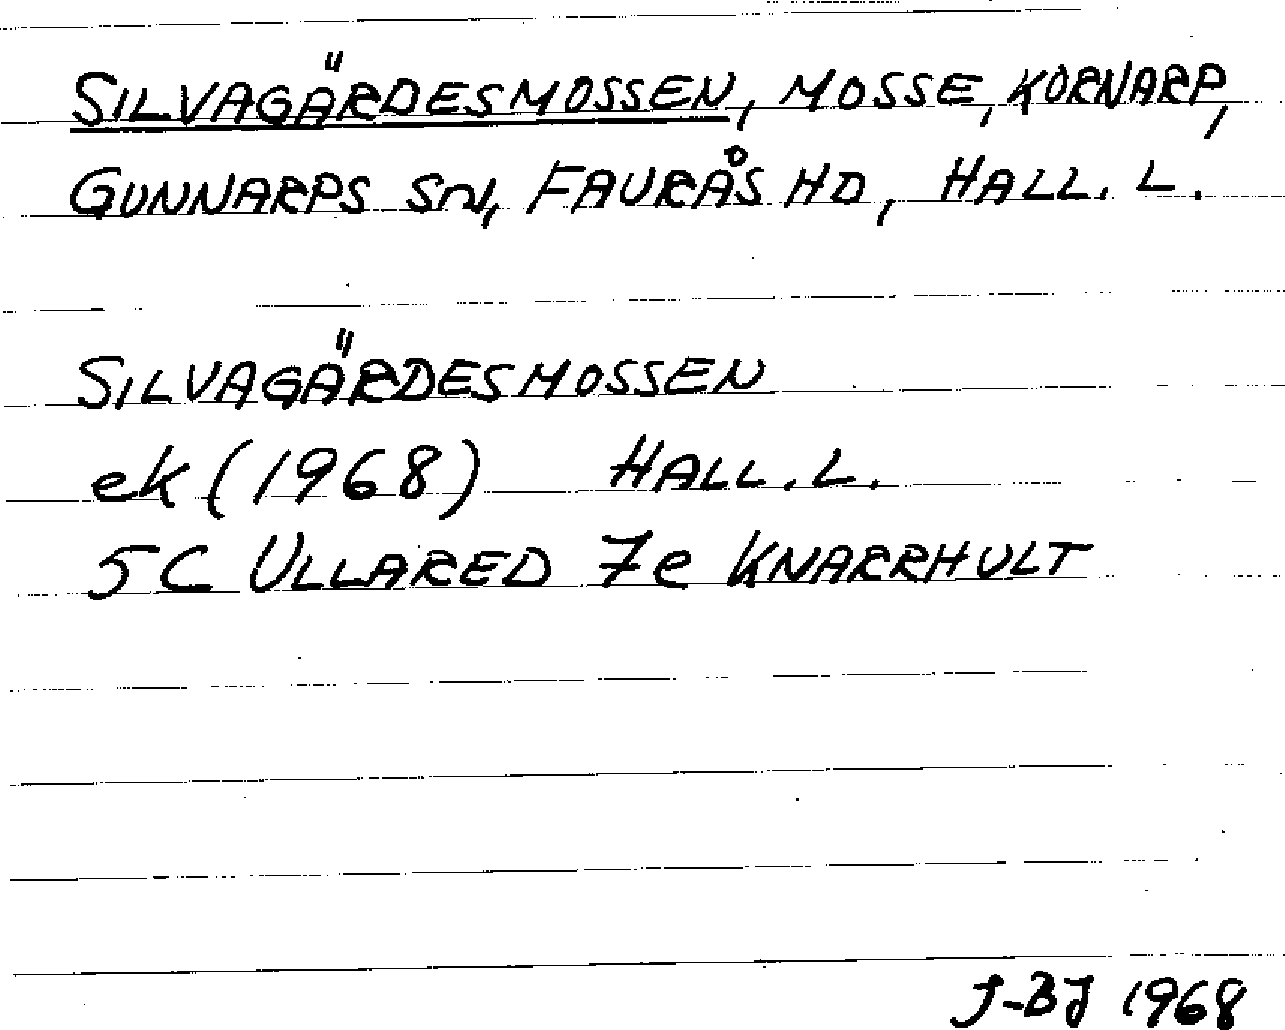 SILVAGÄRDESMOSSEN, MOSSE, KORNARP,
GUNNARPS SN, FAURÅS HD, HALL. L.
SILVAGÄRDESMOSSEN
ek (1968) HALL. L.
5C ULLARED 7e KNARRHULT
J-BJ 1968